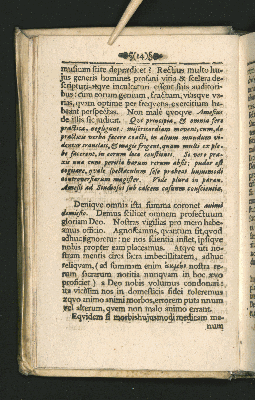 (14)
musicum scite depredicet? Rectius multo hu-
jus generis homines profani vitia & scelera de-
scripturi atque inculcaturi essent suis auditori-
bus: cum eorum genium, fraudum, viasque va-
rias, quam optime per frequens exercitium ha-
beant perspectas. Non male quoque Amesius
de illis sic judicat. Qui principia, & omnia fere
practica, negligunt: misericordiam movent, cum, de
practicis verbo facere coacti, in alium mundum vi-
dentur translati, & magis frigent, quam multi ex ple-
be facerent, in eorum loco constituti. Se vero pra-
xis una cum perula harum rerum abest: pudor est
cogitare, quale spectaculum sese probent hujusmodi
controversiarum magistri. Vide plura in paræn.
Amesii ad Studiosos sub calcem casuum conscientiæ.
Denique omnia ista summa coronet animi
demissio. Demus scilicet omnem profectuum
gloriam Deo. Nostra vigilias pro mero habea-
mus officio. Agnoscamus, quantum sit, quod
adhuc ignoretur: ne nos scientia inflet, ipsique
nobis propter eam placeamus. Atque uti no-
stram mentis circa sacra imbecillitatem, adhuc
reliquam, (ad summum enim nostra re-
rum sacrarum notitia nunquam in hoc ævo
proficiet) a Deo nobis volumus condonari:
ita vicissim nos in domesticis fidei toleremus
æquo animo animi morbos, errorem puta unum
vel alterum, quem non malo animo errant.
Equidem si morbis hujusmodi medicam ma-
num